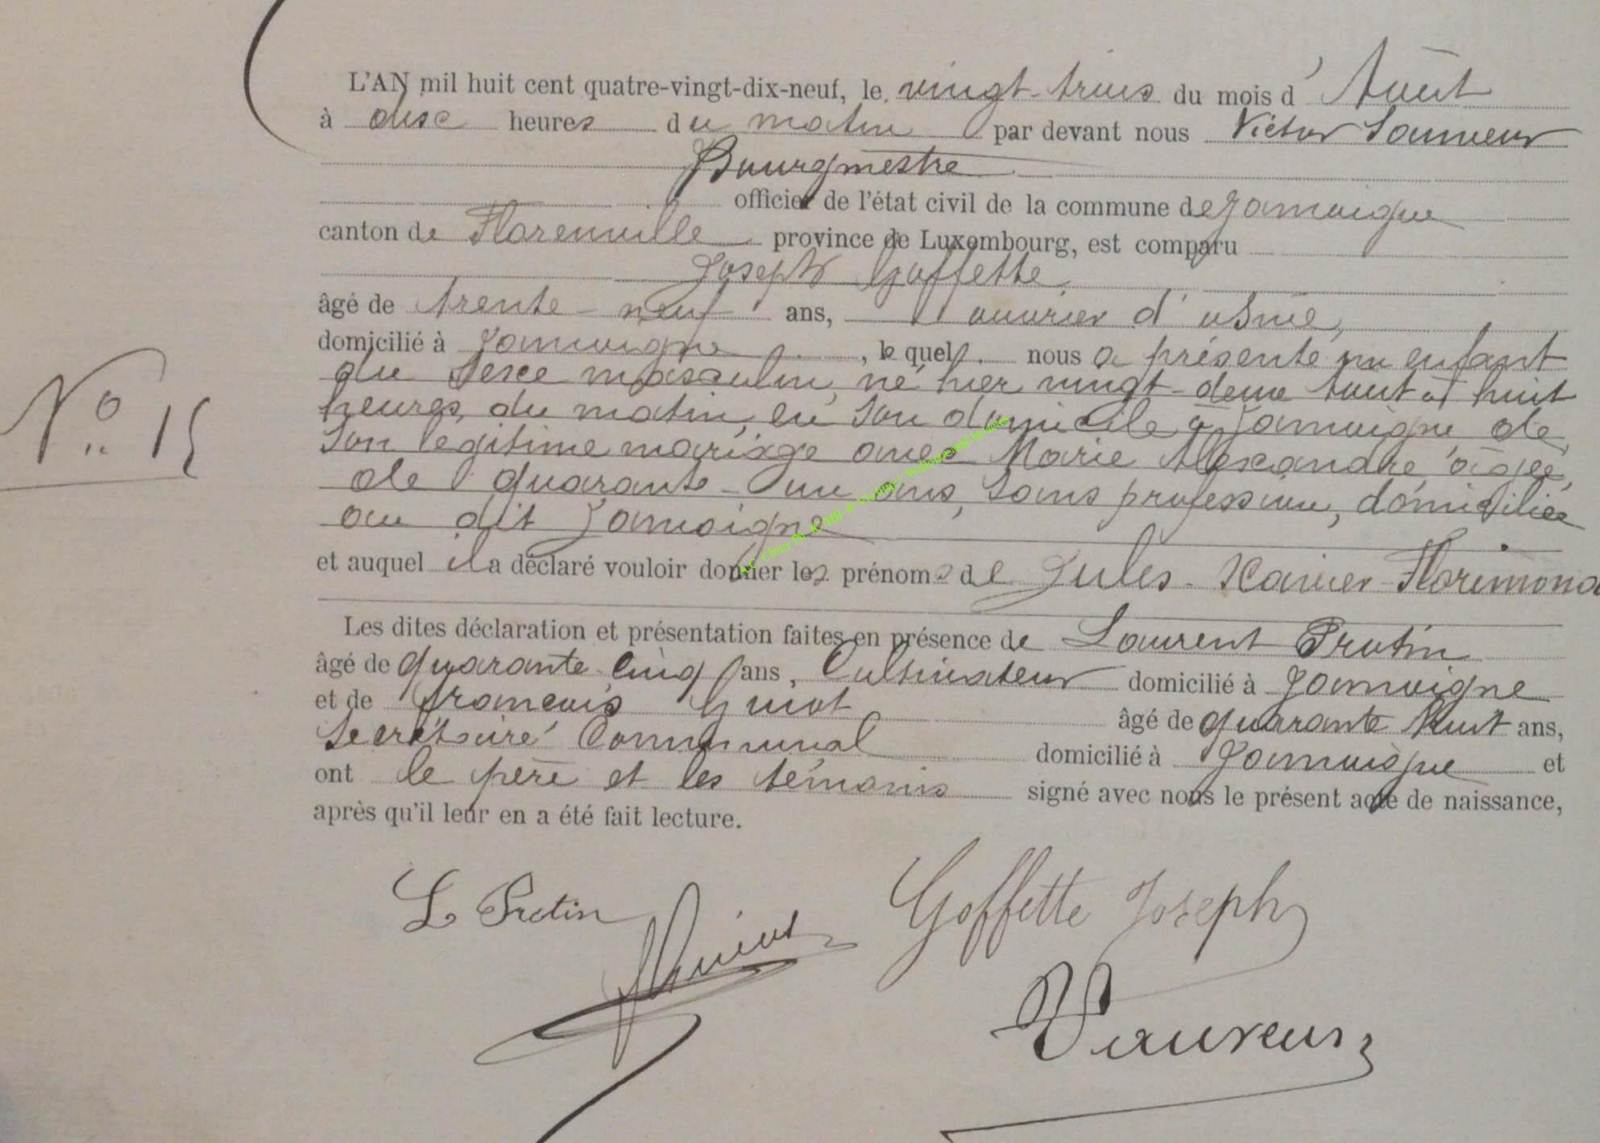 L'AN mil huit cent quatre-vingt-dix-neuf, le vingt-trois du mois d' Août
à dix heures du matin par devant nous Victor Sauveur
Bourgmestre
officier de l'état civil de la commune de Jamoigne
canton de Florenville province de Luxembourg, est comparu
Joseph Goffette,
âgé de trente-neuf ans, ouvrier d'usine,
domicilié à Jamoigne, lequel nous a présenté un enfant
du sexe masculin, né hier vingt-deux août à huit
heures du matin, en son domicile à Jamoigne de
son légitime mariage avec Marie Alexandre âgée
de quarante-un ans, sans profession, domiciliée
au dit Jamoigne
et auquel il a déclaré vouloir donner les prénoms de Jules-Xavier-Florimond
Nº 15
Les dites déclaration et présentation faites en présence de Laurent Protin
âgé de quarante cinq ans, Cultivateur domicilié à Jamoigne
et de François Guiot âgé de quarante huit ans,
Secrétaire Communal domicilié à Jamoigne et
ont le père et les témoins signé avec nous le présent acte de naissance,
après qu'il leur en a été fait lecture.
L Protin Goffette Joseph
Guiot
V Sauveur